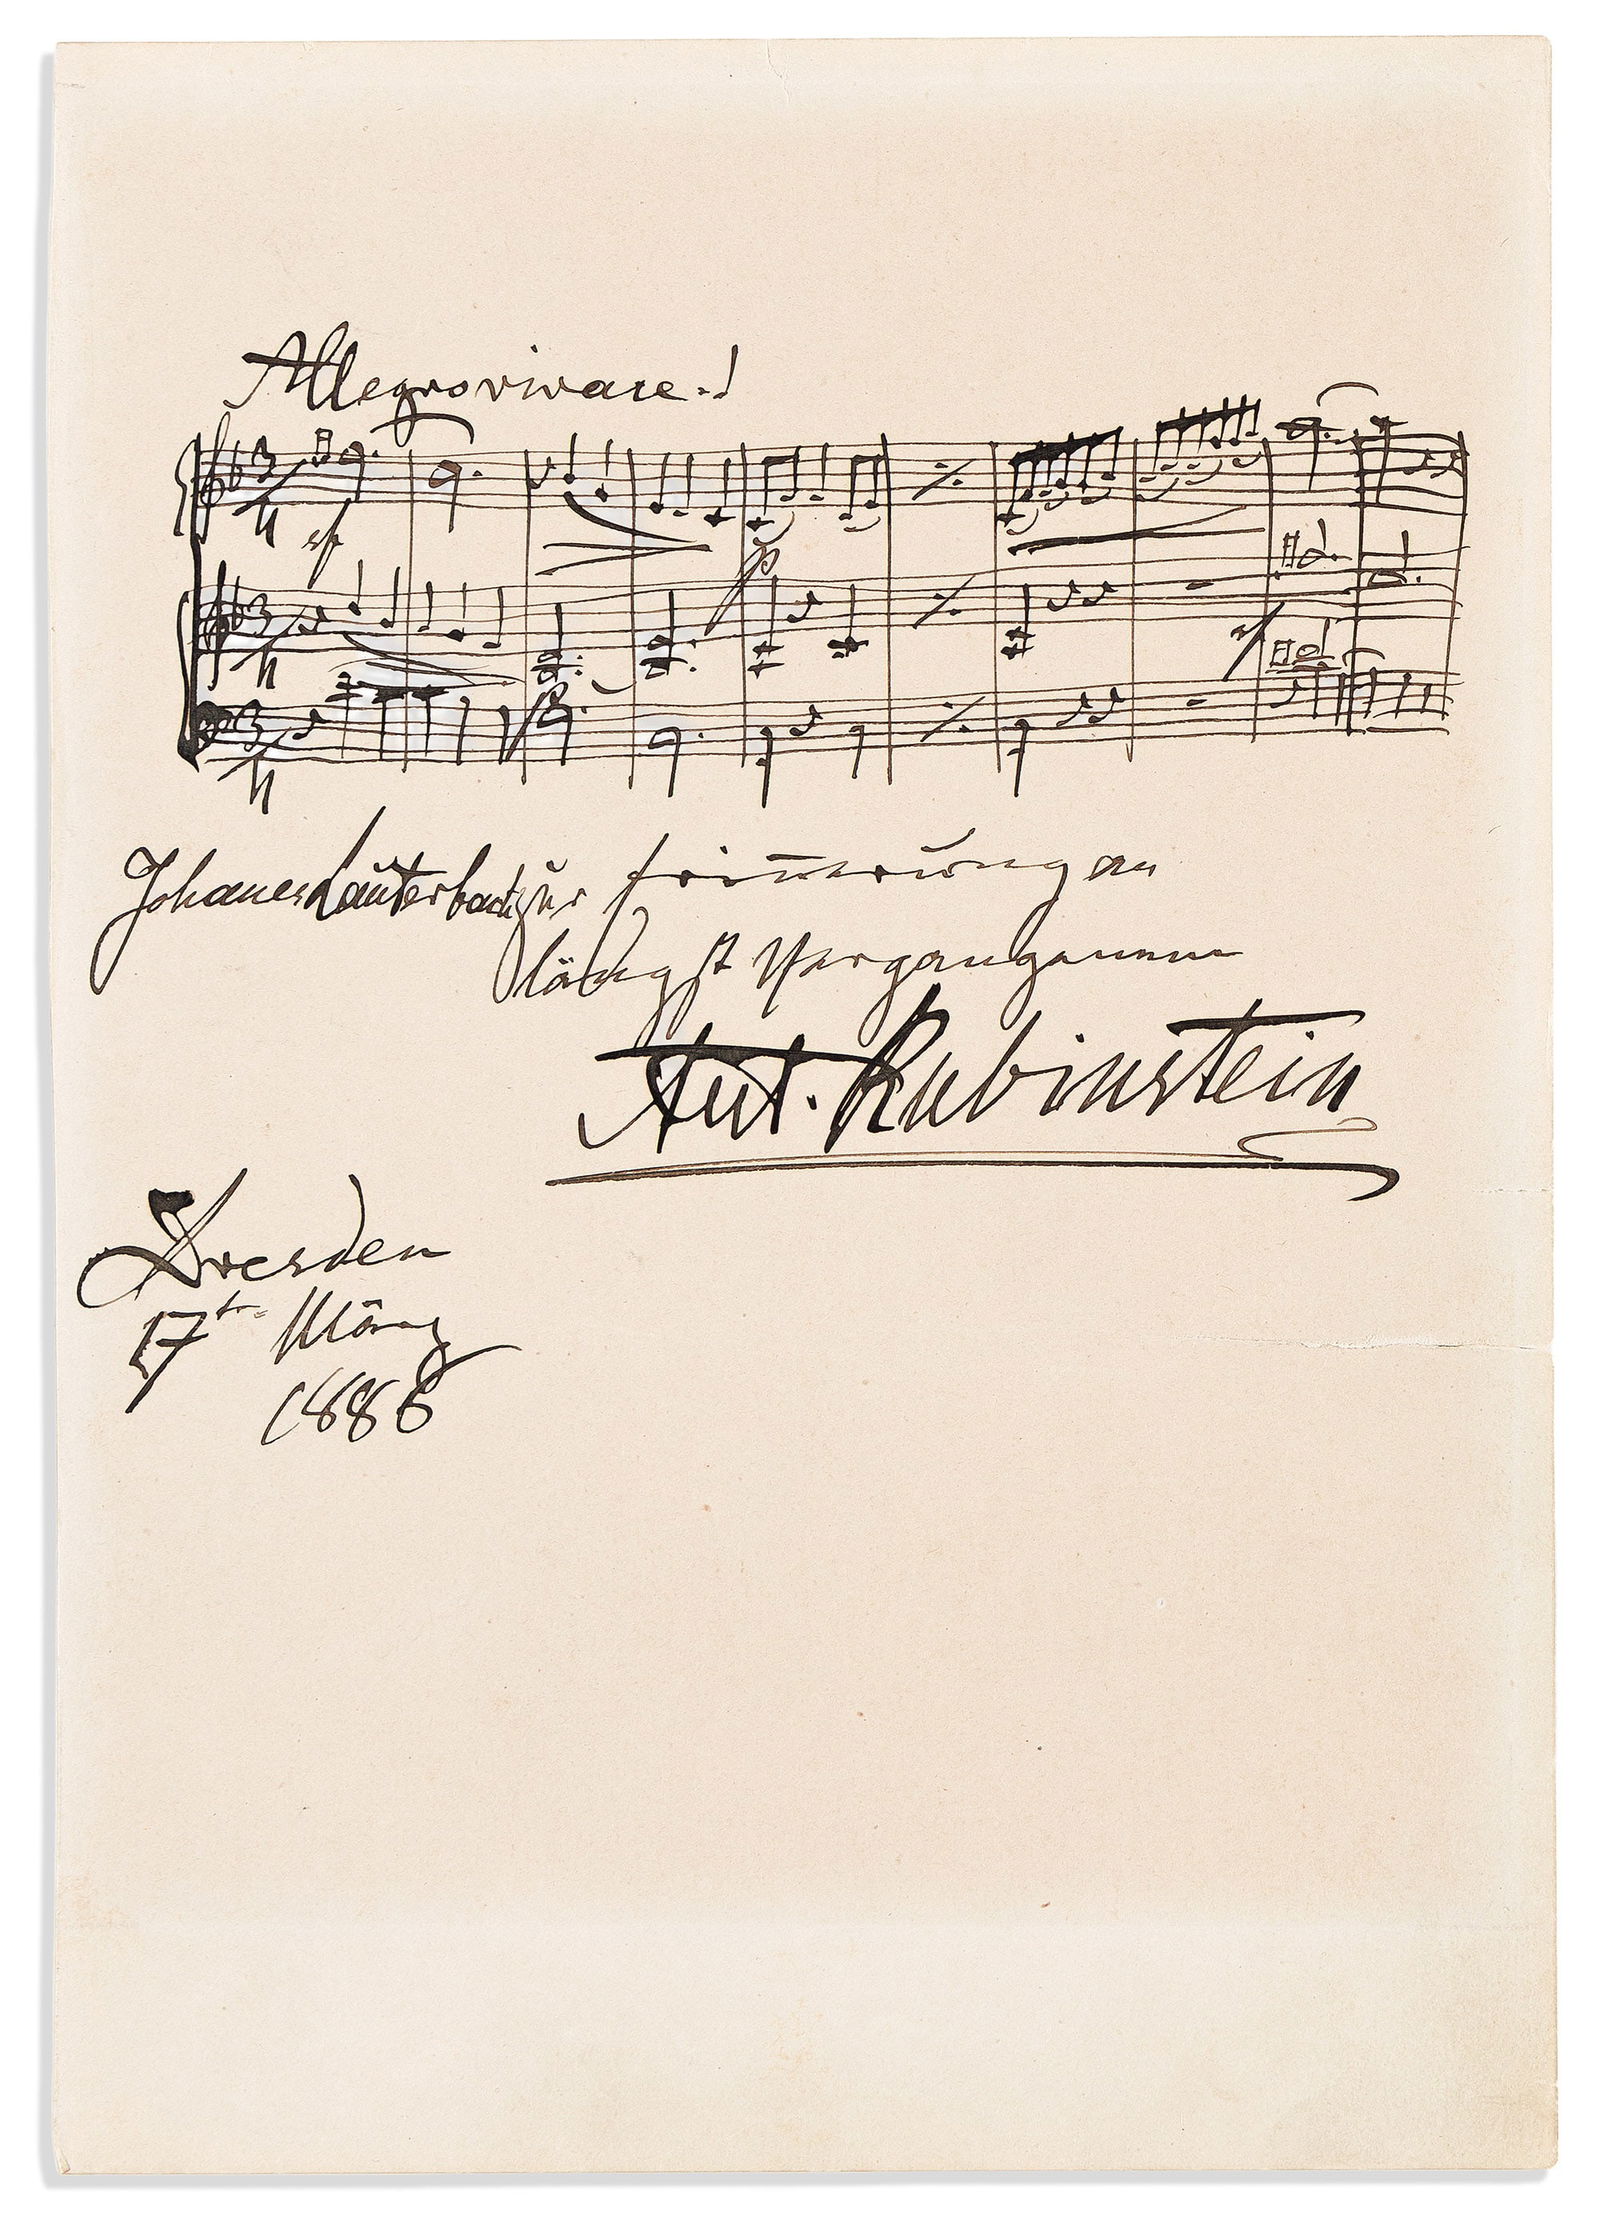 Allegro vivace.
sf
p
sf
Johanes Lauterbach zur Erinnerung an
längst Vergangenem
Ant. Rubinstein
Dresden
17te März
1886